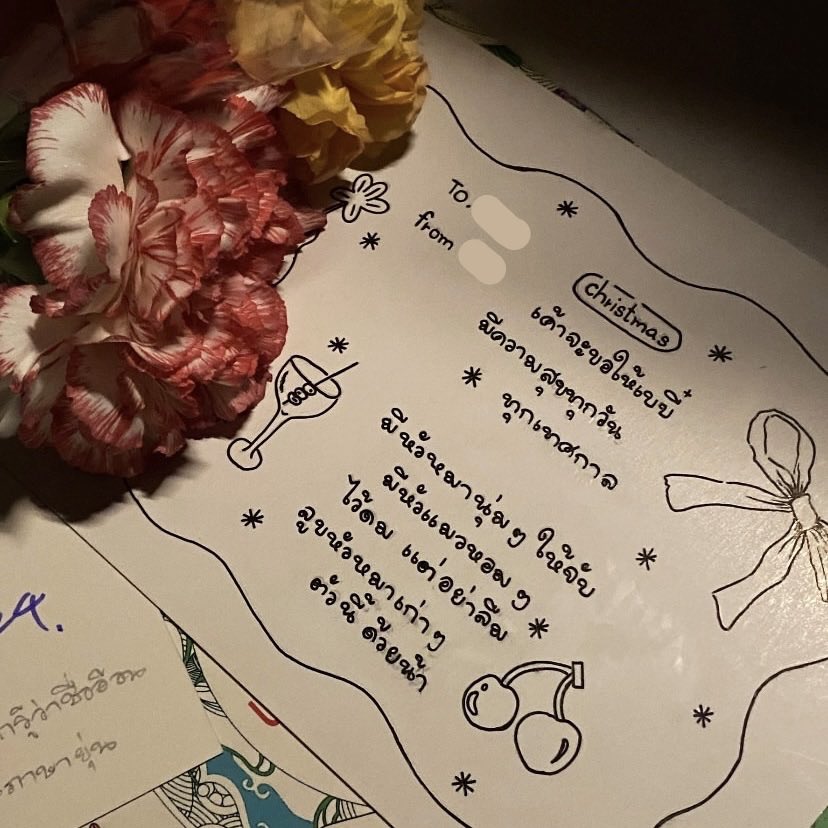 To.
from
christmas
เค้าจะขอให้เบบี๋
มีความสุขทุกวัน
ทุกเทศกาล
มีหัวหมานุ่มๆ ให้จับ
มีหัวแมวหอมๆ
ไว้ดม แต่อย่าลืม
ลูบหัวหมาเก่าๆ
ตัวนี้ด้วยน้า
รู้ว่าชื่อ
ภาษา